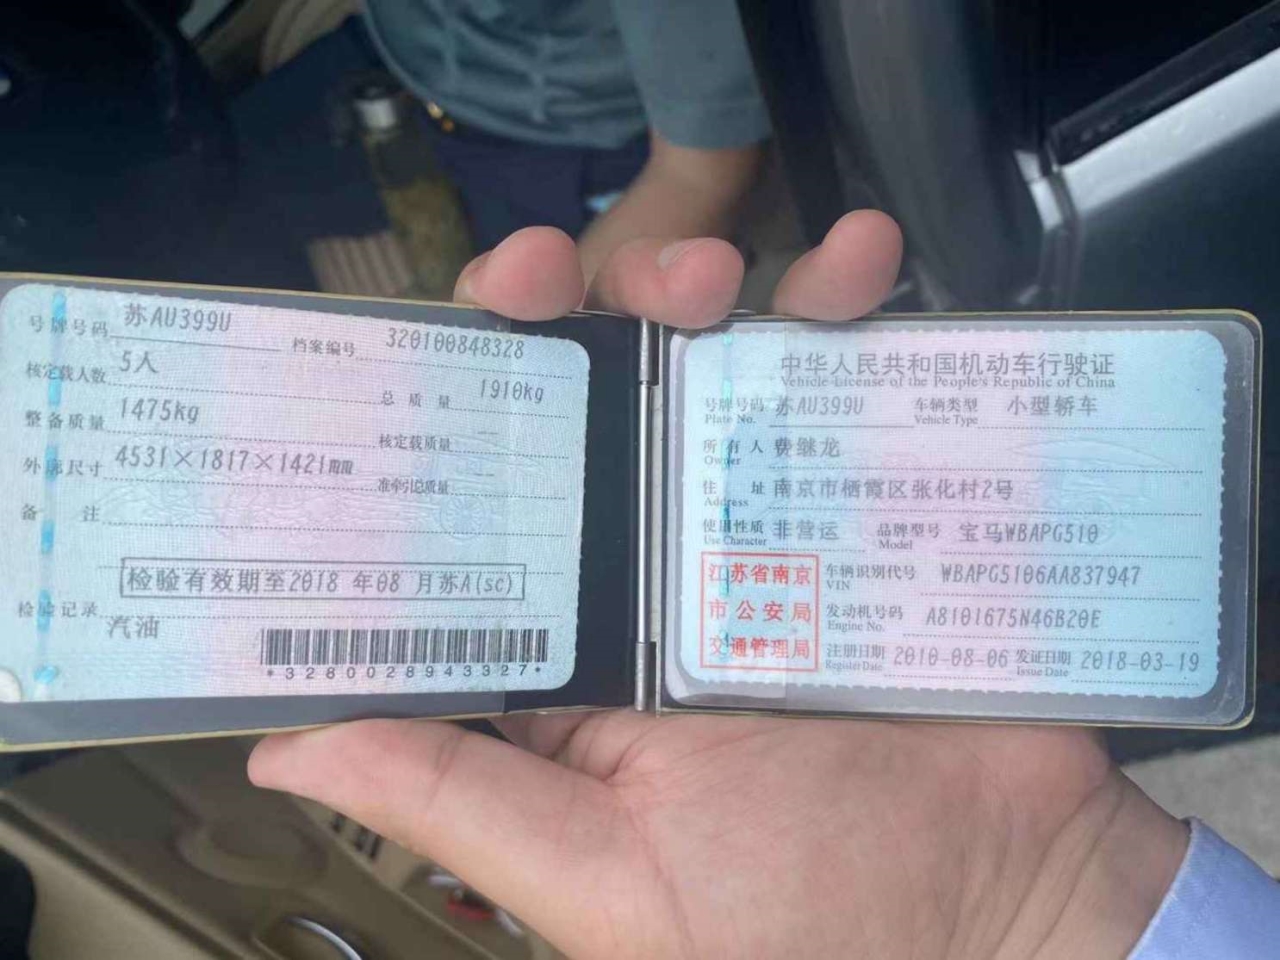 号牌号码 苏AU399U 档案编号 320100848328
核定载人数 5人 总质量 1910kg
整备质量 1475kg 核定载质量 --
外廓尺寸 4531×1817×1421mm 准牵引总质量 --
备注
检验有效期至2018 年08 月苏A(sc)
检验记录
汽油
*3280028943327*
中华人民共和国机动车行驶证
Vehicle License of the People's Republic of China
号牌号码 苏AU399U 车辆类型 小型轿车
Plate No. Vehicle Type
所有人 费继龙
Owner
住址 南京市栖霞区张化村2号
Address
使用性质 非营运 品牌型号 宝马WBAPG510
Use Character Model
江苏省南京
市公安局
交通管理局
车辆识别代号 WBAPG5106AA837947
VIN
发动机号码 A8101675N46B20E
Engine No.
注册日期 2010-08-06 发证日期 2018-03-19
Register Date Issue Date